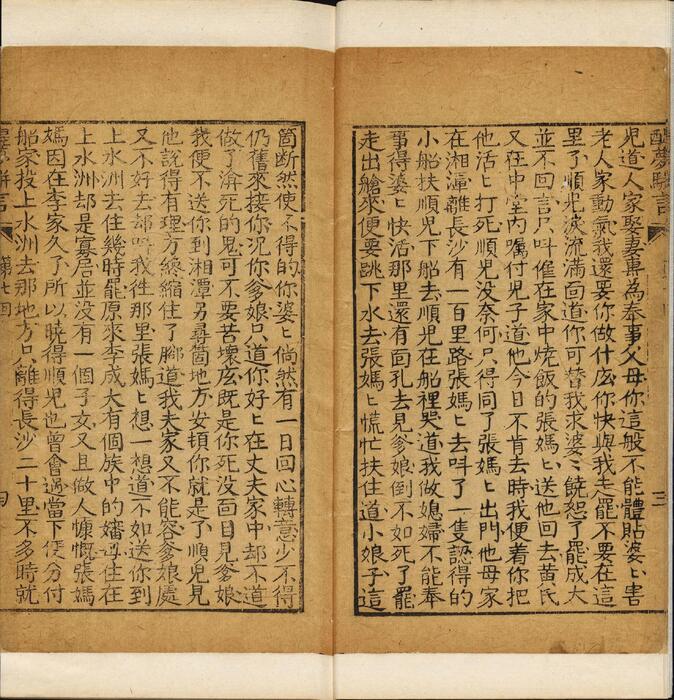 醒夢駢言
児道人家娶妻專為奉事父母你這般不能體貼婆〻害
老人家動氣我還要你做什庅你快與我走罷不要在這
里了順児淚流滿面道你可替我求婆〻饒恕了罷成大
並不回言只呌僱在家中燒飯的張媽〻送他回去黄氏
又在中堂內嘱付児子道他今日不肯去時我便着你把
他活〻打死順児没奈何只得同了張媽〻出門他母家
在湘潭離長沙有一百里路張媽〻去呌了一隻認得的
小船扶順児下船去順児在船裡哭道我做媳婦不能奉
事得婆〻快活那里還有面孔去見爹娘倒不如死了罷
走出艙來便要跳下水去張媽〻慌忙扶住道小娘子這
箇断然使不得的你婆〻倘然有一日回心轉意少不得
仍舊來接你况你爹娘只道你好〻在丈夫家中却不道
做了渰死的鬼可不要苦壞庅既是你死没面目見爹娘
我便不送你到湘潭另尋箇地方安頓你就是了順児見
他說得有理方纔縮住了脚道我夫家又不能容爹娘處
又不好去却呌我徃那里張媽〻想一想道不如送你到
上水洲去住幾時罷原來李成大有個族中的嬸母住在
上水洲却是寡居並没有一個子女又且做人慷慨張媽
媽因在李家久了所以曉得順児也曾會過當下便分付
船家投上水洲去那地方只離得長沙二十里不多時就
第七回
四